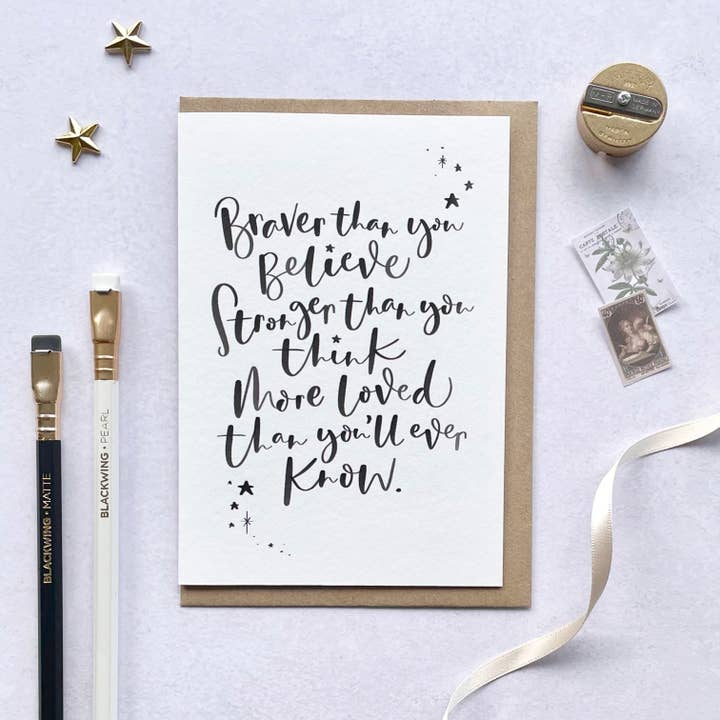 Braver than you
Believe
Stronger than you
think
More loved
than you'll ever
know.
BLACKWING • MATTE
BLACKWING • PEARL
MADE IN
GERMANY
CARTE POSTALE